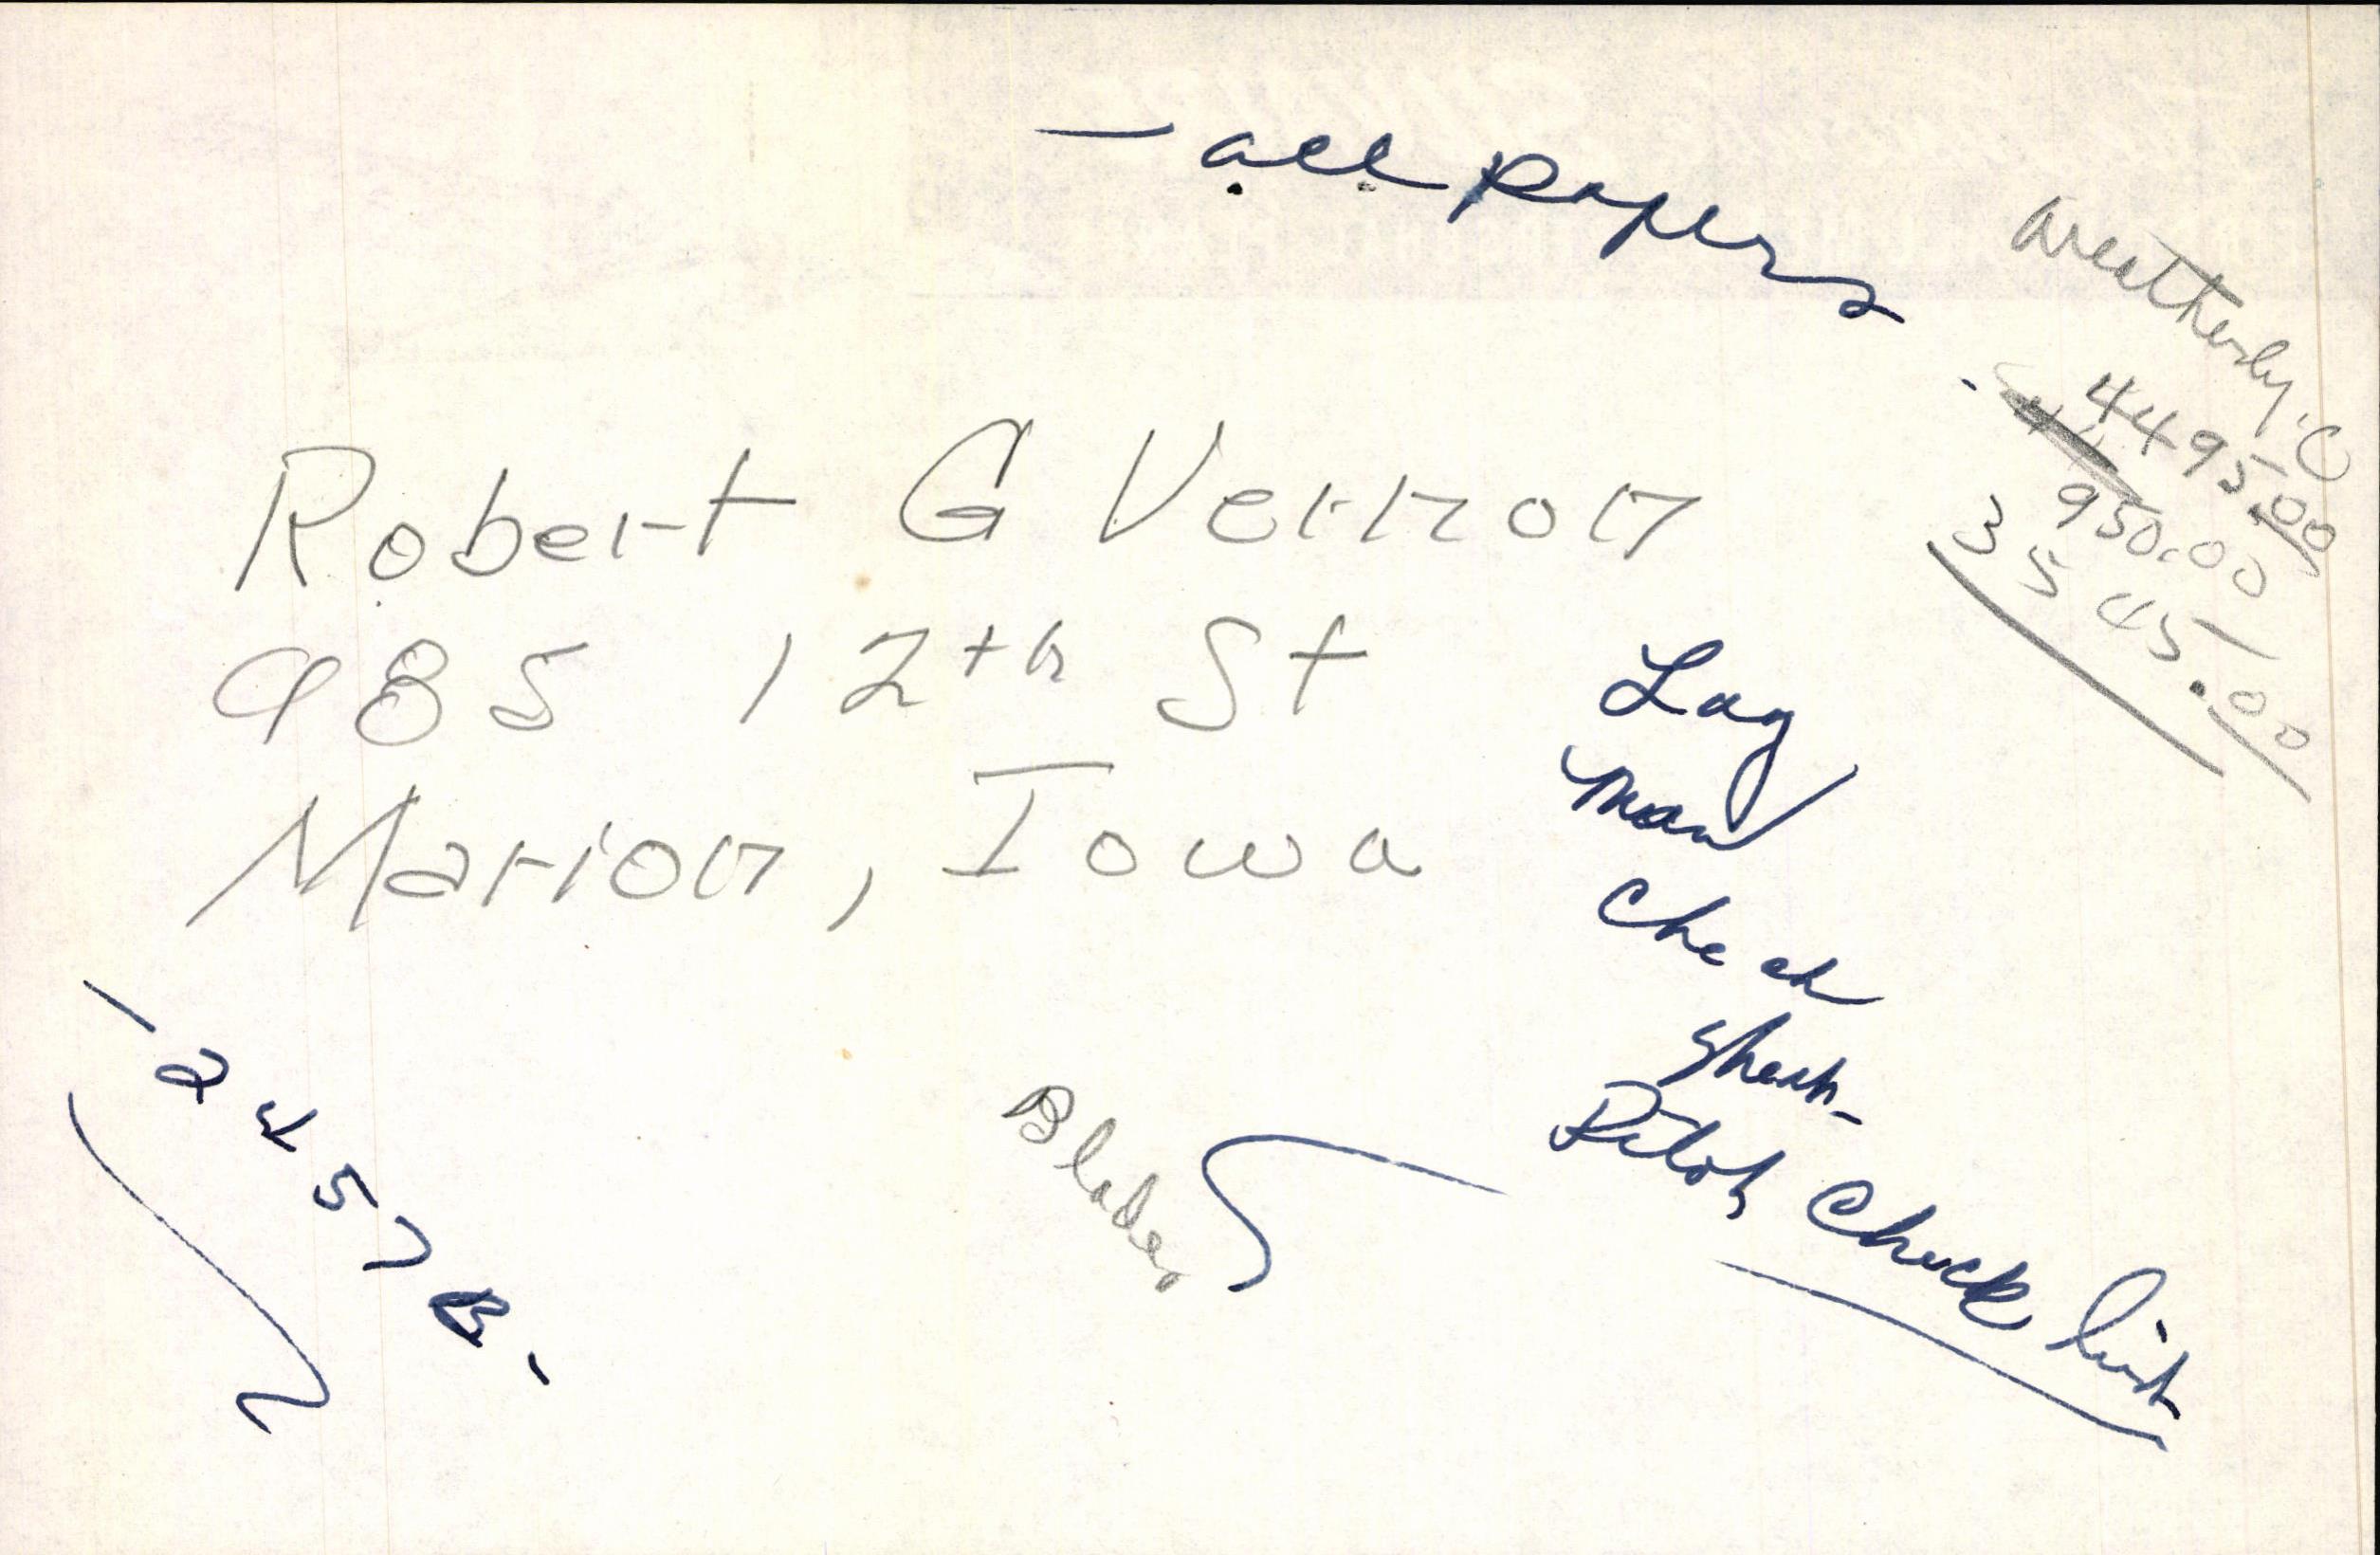 - all papers
Weatherly.C
4495.00
950.00
3545.00
Robert G Vernon
985 12th St
Marion, Iowa
Log
man
Check
sheet-
Pilot Check list
Blades
- 2457B.